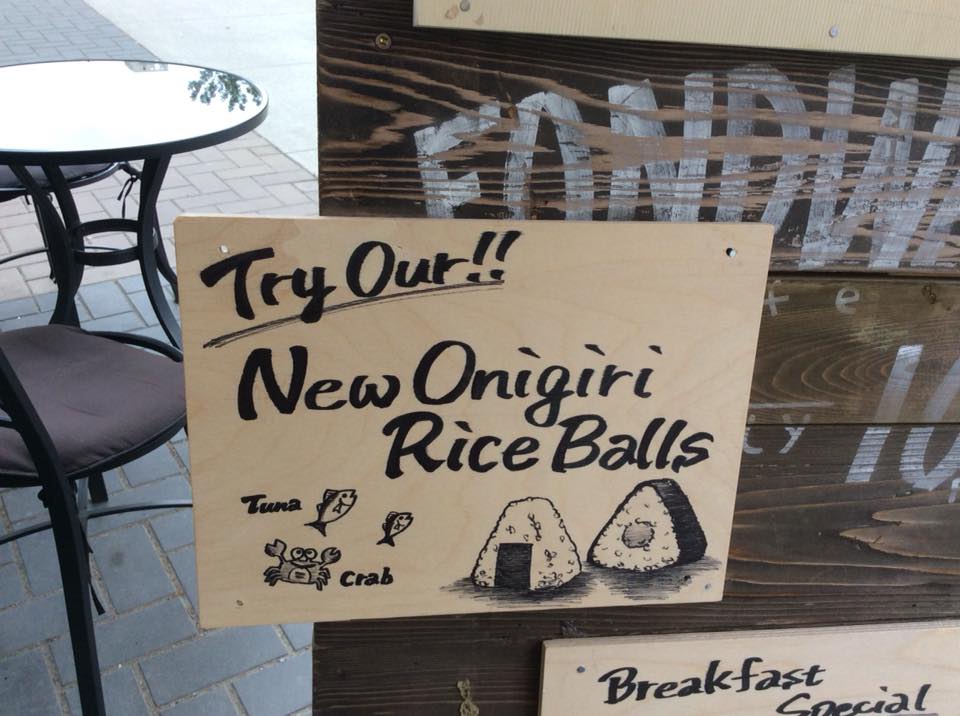 Try Our!!
New Onigiri
Rice Balls
Tuna
Crab
Breakfast
Special